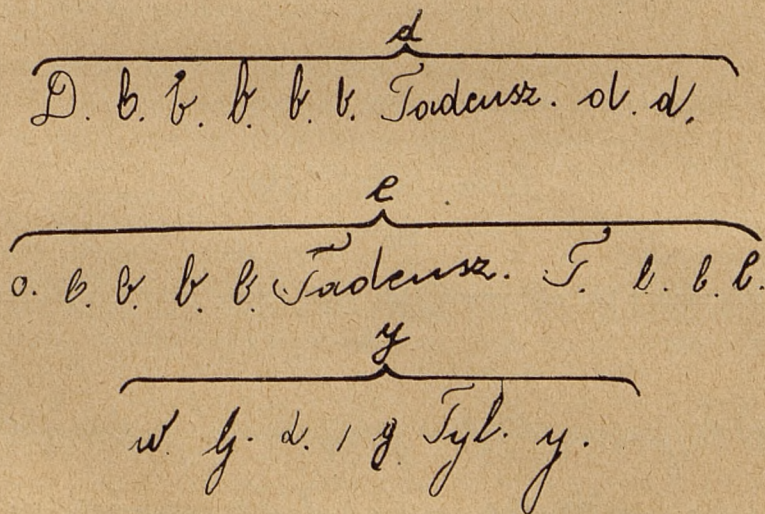 d
D. b. b. b. b. b. Tadeusz. d. d.
e
o. b. b. b. b. Tadeusz. T. l. b. b.
y
w y. d. , g Tyl. y.